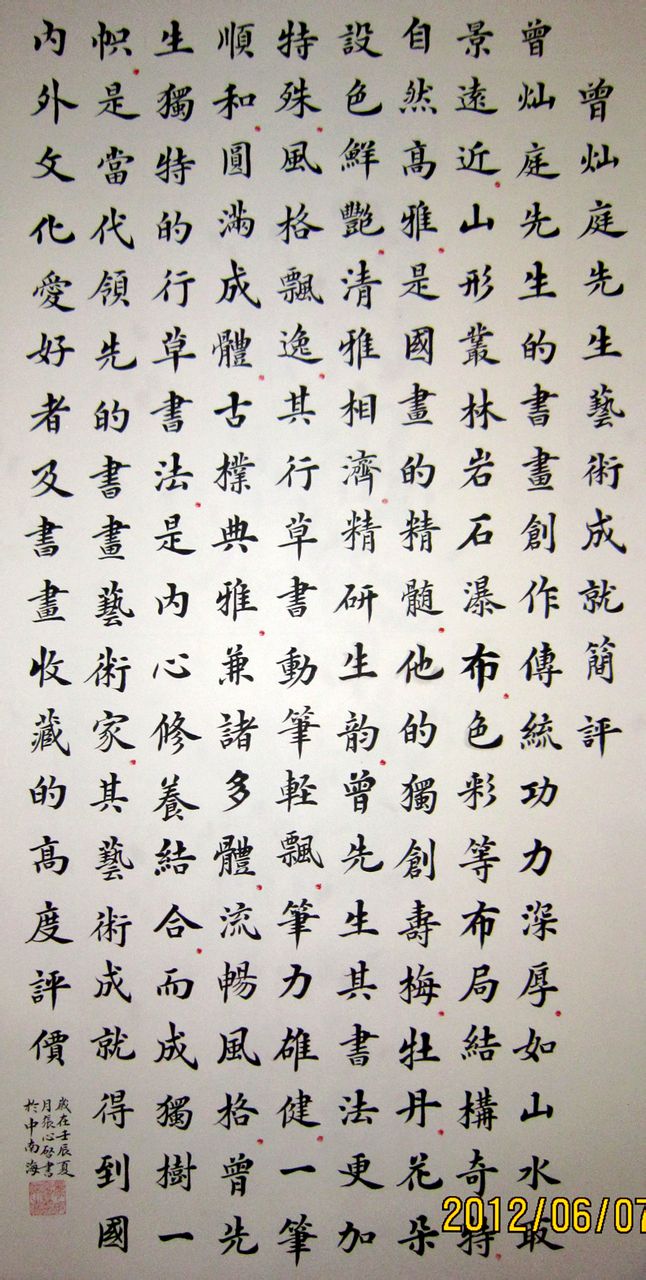 曾灿庭先生藝術成就簡評
曾灿庭先生的書畫創作傳統功力深厚如山水取
景遠近山形叢林岩石瀑布色彩等布局結構奇特
自然高雅是國畫的精髓他的獨創壽梅牡丹花朵
設色鮮艷清雅相濟精研生韵曾先生其書法更加
特殊風格飄逸其行草書動筆輕飄筆力雄健一筆
順和圓滿成體古樸典雅兼諸多體流暢風格曾先
生獨特的行草書法是内心修養結合而成獨樹一
幟是當代領先的書畫藝術家其藝術成就得到國
内外文化愛好者及書畫收藏的高度評價
歲在壬辰夏
月張心啓書
於中南海
2012/06/07